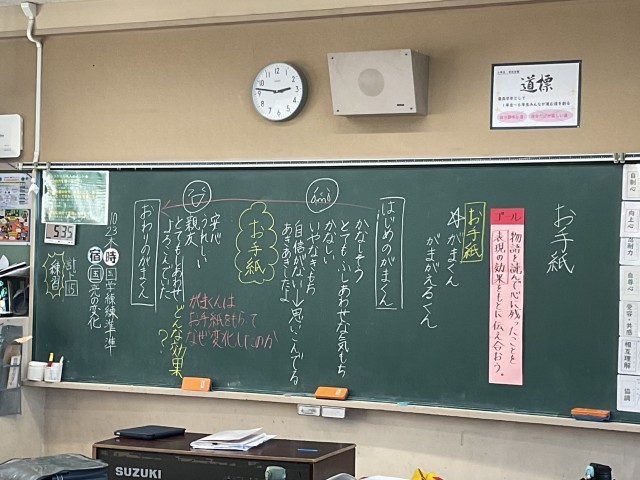 お手紙
ゴール
物語を読んで心に残ったことを
表現の効果をもとに伝え合おう。
お手紙
がまくん
かえるくん
はじめのがまくん
かなしそう
とてもふしあわせな気もち
かなしい
いやなきもち
自信がない→思いこんでる
あきあきしたよ
お手紙
がまくんは
お手紙をもらって
なぜ変化したのか
どんな効果
?
おわりのがまくん
安心
うれしい
親友
とてもしあわせ
よろこんでいた
10
23
木
時
宿
国
練習
15
535
道標
SUZUKI
自制心
向上心
忍耐力
自尊心
受容・共感
相互理解
協調